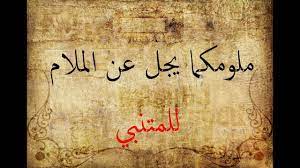 ملومكما يجل عن الملام
للمتنبي